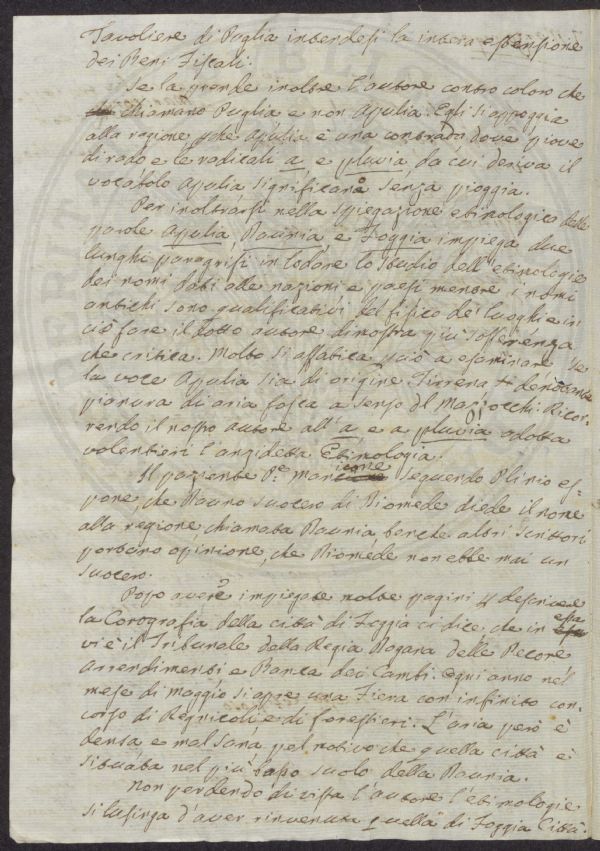 Tavoliere di Puglia intendesi la intera estensione
dei Beni Fiscali.
Se la prende inoltre l'autore contro coloro che
chiamano Puglia e non Apulia. Egli si appoggia
alla ragione che Apulia è una contrada dove piove
di rado e le radicali a e pluvia da cui deriva il
vocabolo Apulia significano senza pioggia.
Per inoltrarsi nella spiegazione etimologica delle
parole Apulia, Daunia, e Foggia impiega due
lunghi paragrafi in lodare lo studio dell'etimologie
dei nomi dati alle nazioni e paesi mentre i nomi
antichi sono qualificativi del fisico de' luoghi e in
ciò fare il dotto autore dimostra più sofferenza
che critica. Molto si affatica poi a esaminare se
la voce Apulia sia di origine Tirrena denotante
pianura di aria fosca a senso del Mazzocchi. Ricor-
rendo il nostro autore all'a e a pluvia adotta
volentieri l'anzidetta Etimologia.
Il paziente P.e seguendo Plinio es-
pone, che Dauno suocero di Diomede diede il nome
alla regione chiamata Daunia, benche altri scrittori
portano opinione, che Diomede non ebbe mai un
suocero.
Dopo avere impiegate molte pagini p descrivere
la Corografia della città di Foggia ci dice, che in essa
vi è il Tribunale della Regia Dogana delle Pecore
Arrendimenti e Banca dei Cambi. ogni anno nel
mese di maggio si apre una Fiera con infinito con-
corso di Regnicoli e di forestieri. L'aria però è
densa e mal sana pel motivo che quella città è
situata nel più basso suolo della Daunia.
Non perdendo di vista l'autore l'etimologie
si lusinga d'aver rinvenuta quella di Foggia Città.